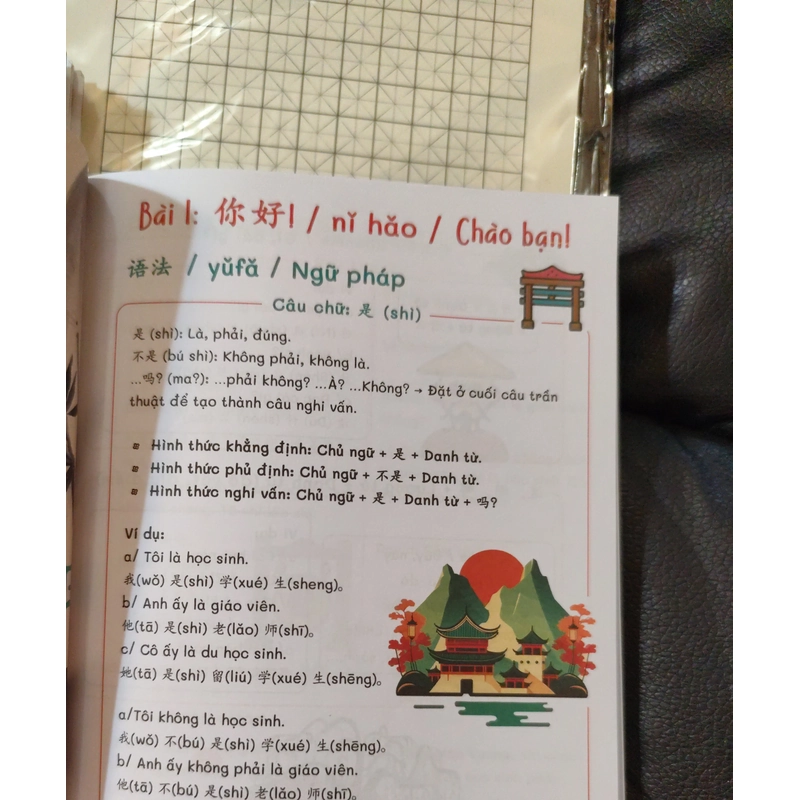 Bài 1: 你好! / nǐ hǎo / Chào bạn!
语法 / yǔfǎ / Ngữ pháp
Câu chữ: 是 (shì)
是 (shì): Là, phải, đúng.
不是 (bú shì): Không phải, không là.
...吗? (ma?): ...phải không? ...À? ...Không? → Đặt ở cuối câu trần
thuật để tạo thành câu nghi vấn.
Hình thức khẳng định: Chủ ngữ + 是 + Danh từ.
Hình thức phủ định: Chủ ngữ + 不是 + Danh từ.
Hình thức nghi vấn: Chủ ngữ + 是 + Danh từ + 吗?
Ví dụ:
a/ Tôi là học sinh.
我(wǒ) 是(shì) 学(xué) 生(sheng)。
b/ Anh ấy là giáo viên.
他(tā) 是(shì) 老(lǎo) 师(shī)。
c/ Cô ấy là du học sinh.
她(tā) 是(shì) 留(liú) 学(xué) 生(shēng)。
a/Tôi không là học sinh.
我(wǒ) 不(bú) 是(shì) 学(xué) 生(shēng)。
b/ Anh ấy không phải là giáo viên.
他(tā) 不(bú) 是(shì) 老(lǎo) 师(shī)。